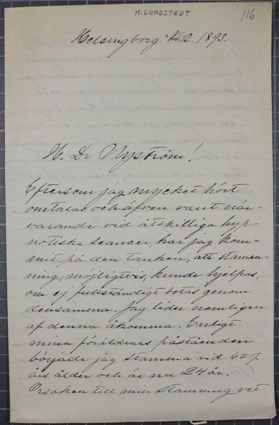 M. LUNDSTEDT
116
Helsingborg 2. 1893.
H. Dr Nyström!
Eftersom jag mycket hört
omtalas och äfven varit när-
varande vid åtskilliga hyp-
notiska seancer, har jag kom-
mit på den tanken, att stam-
ning, möjligtvis, kunde hjelpas,
om ej fullständigt botas genom
densamma. Jag lider nemligen
af denna åkomma. Enligt
mina föräldrars påstående
började jag stamma vid 6 a 7
års ålder och är nu 24 år.
Orsaken till min stamning vet